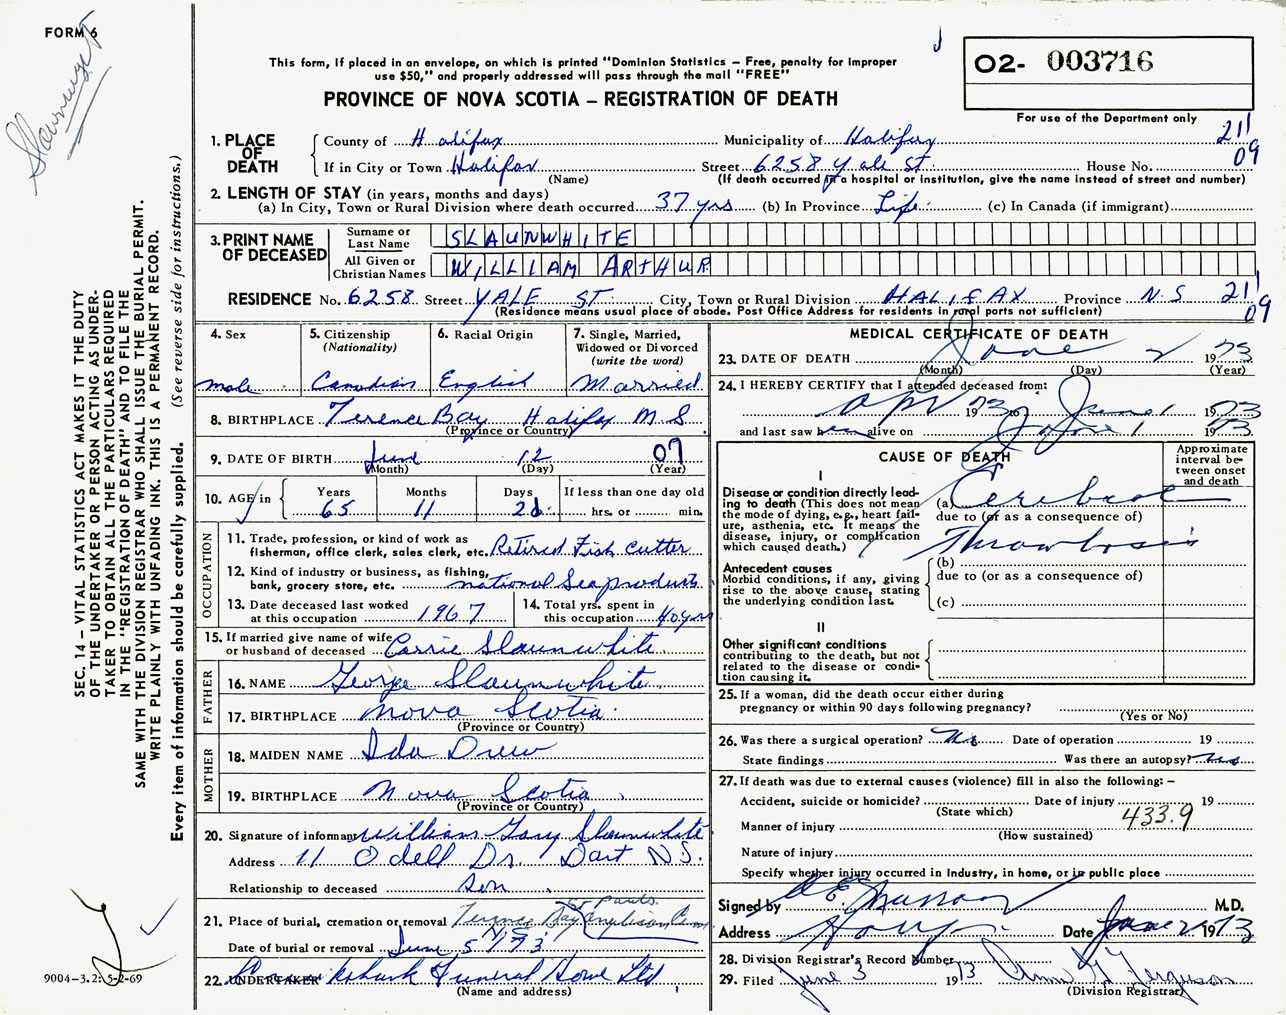 FORM 6
Slaunwhite
This form, if placed in an envelope, on which is printed "Dominion Statistics – Free, penalty for improper
use $50," and properly addressed will pass through the mail "FREE"
PROVINCE OF NOVA SCOTIA – REGISTRATION OF DEATH
O2- 003716
For use of the Department only
1. PLACE OF DEATH
County of Halifax Municipality of Halifax 211
If in City or Town Halifax (Name) Street 6258 Yale St House No. 09
(If death occurred in a hospital or institution, give the name instead of street and number)
2. LENGTH OF STAY (in years, months and days)
(a) In City, Town or Rural Division where death occurred 37 yrs (b) In Province Life (c) In Canada (if immigrant)
3. PRINT NAME OF DECEASED
Surname or Last Name SLAUNWHITE
All Given or Christian Names WILLIAM ARTHUR
RESIDENCE No. 6258 Street YALE ST. City, Town or Rural Division HALIFAX Province N.S 211
09
(Residence means usual place of abode. Post Office Address for residents in rural parts not sufficient)
4. Sex male
5. Citizenship (Nationality) Canadian
6. Racial Origin English
7. Single, Married, Widowed or Divorced (write the word) Married
8. BIRTHPLACE Terence Bay Halifax N.S.
(Province or Country)
9. DATE OF BIRTH June 12 07
(Month) (Day) (Year)
10. AGE in Years 65 Months 11 Days 21 If less than one day old hrs. or min.
OCCUPATION
11. Trade, profession, or kind of work as
fisherman, office clerk, sales clerk, etc. Retired Fish Cutter
12. Kind of industry or business, as fishing,
bank, grocery store, etc. National Seaproducts
13. Date deceased last worked
at this occupation 1967
14. Total yrs. spent in
this occupation 40 yrs
15. If married give name of wife
or husband of deceased Carrie Slaunwhite
FATHER
16. NAME George Slaunwhite
17. BIRTHPLACE Nova Scotia
(Province or Country)
MOTHER
18. MAIDEN NAME Ida Drew
19. BIRTHPLACE Nova Scotia
(Province or Country)
20. Signature of informant William Gary Slaunwhite
Address 11 Odell Dr. Dart N.S.
Relationship to deceased Son
21. Place of burial, cremation or removal Terence Bay Anglican Cem
St Pauls
N.S.
Date of burial or removal June 5 1973
22. UNDERTAKER Cruikshank Funeral Home Ltd
(Name and address)
MEDICAL CERTIFICATE OF DEATH
23. DATE OF DEATH June 2 1973
(Month) (Day) (Year)
24. I HEREBY CERTIFY that I attended deceased from:
Apr 1973 to June 1 1973
and last saw him alive on June 1 1973
CAUSE OF DEATH
Approximate interval between onset and death
I
Disease or condition directly leading to death (This does not mean the mode of dying, e.g., heart failure, asthenia, etc. It means the disease, injury, or complication which caused death.)
(a) Cerebral
due to (or as a consequence of)
Thrombosis
Antecedent causes
Morbid conditions, if any, giving rise to the above cause, stating the underlying condition last.
(b)
due to (or as a consequence of)
(c)
II
Other significant conditions
contributing to the death, but not related to the disease or condition causing it.
25. If a woman, did the death occur either during
pregnancy or within 90 days following pregnancy?
(Yes or No)
26. Was there a surgical operation? No Date of operation 19
State findings Was there an autopsy? No
27. If death was due to external causes (violence) fill in also the following: –
Accident, suicide or homicide? Date of injury 19
(State which)
433.9
Manner of injury
(How sustained)
Nature of injury
Specify whether injury occurred in industry, in home, or in public place
Signed by M.D.
Address Date June 2 1973
28. Division Registrar's Record Number
29. Filed June 3 1973 Ferguson
(Division Registrar)
SEC. 14 – VITAL STATISTICS ACT MAKES IT THE DUTY
OF THE UNDERTAKER OR PERSON ACTING AS UNDER-
TAKER TO OBTAIN ALL THE PARTICULARS REQUIRED
IN THE "REGISTRATION OF DEATH" AND TO FILE THE
SAME WITH THE DIVISION REGISTRAR WHO SHALL ISSUE THE BURIAL PERMIT.
WRITE PLAINLY WITH UNFADING INK. THIS IS A PERMANENT RECORD.
Every item of information should be carefully supplied. (See reverse side for instructions.)
9004–3.2: 5-2-69